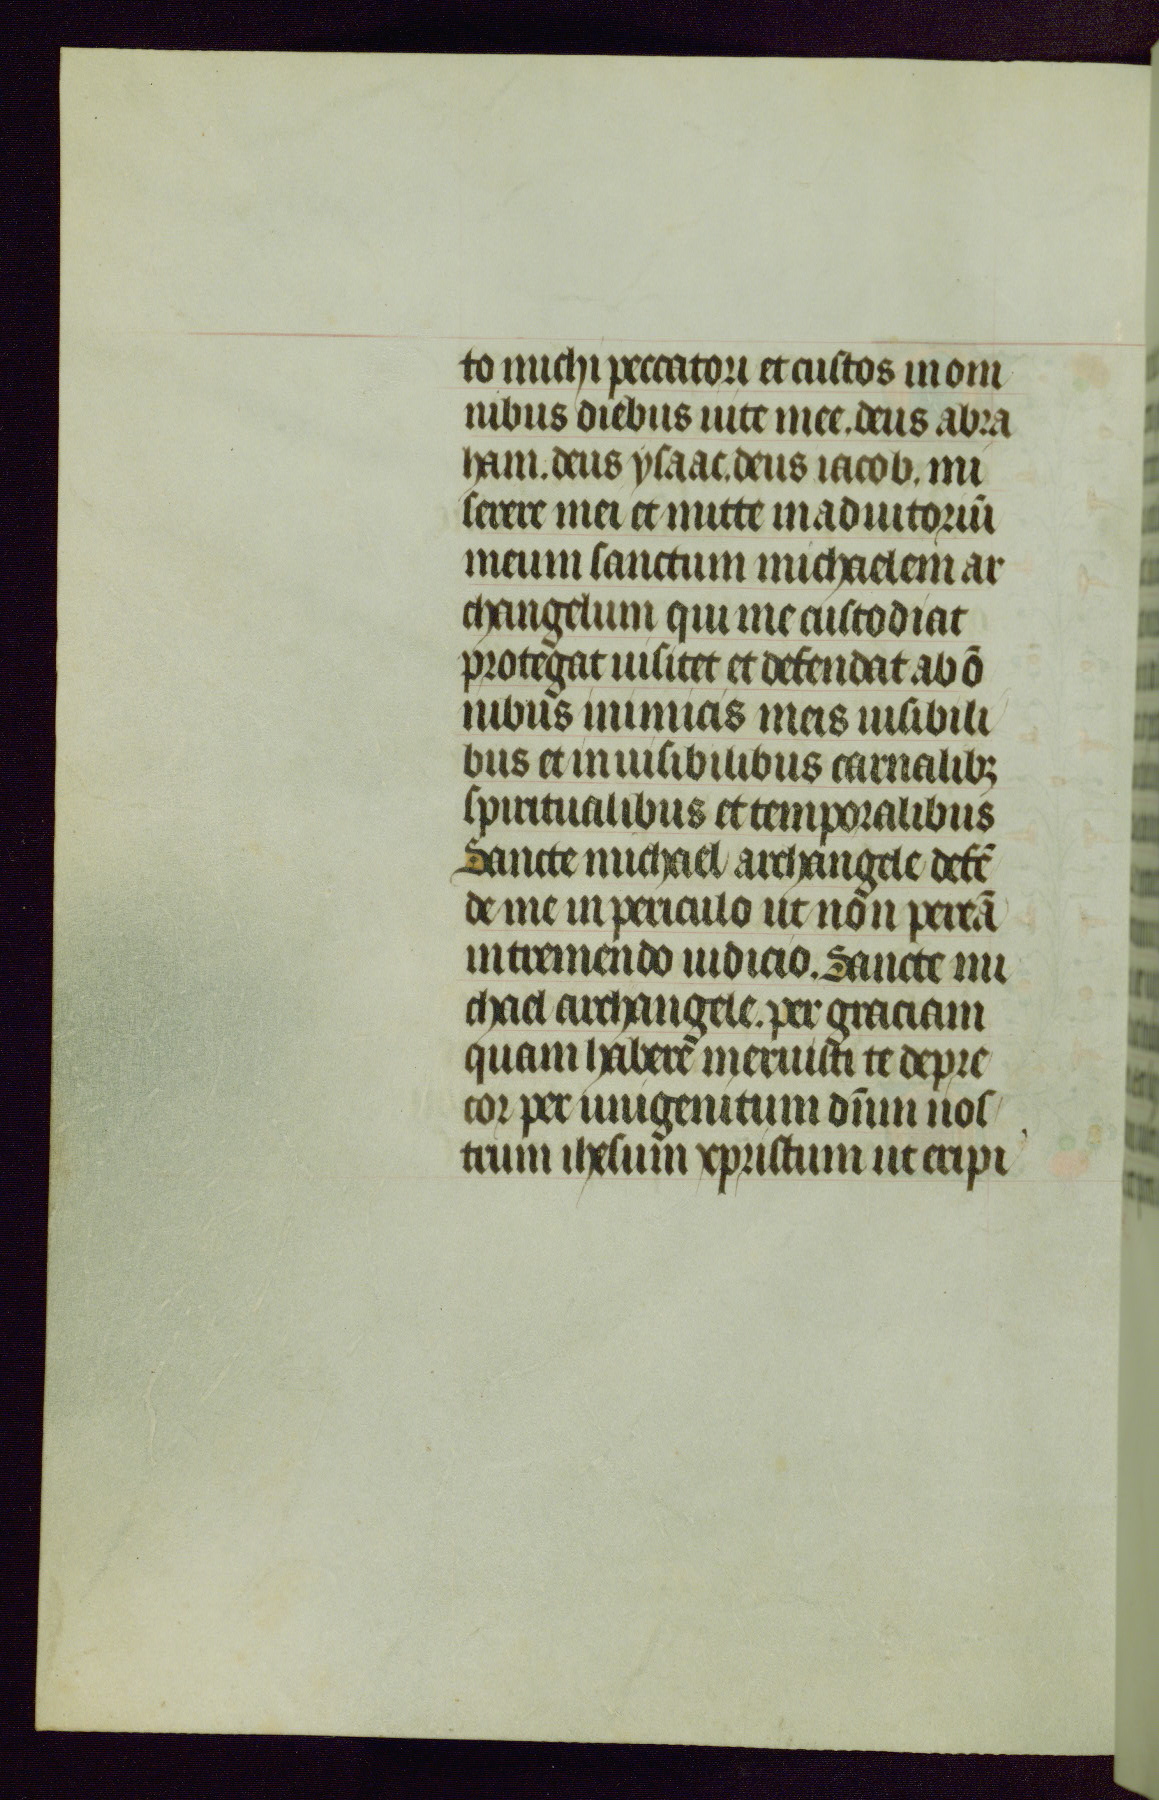 to michi peccatori et custos in om
nibus diebus uite mee. deus abra
ham. deus ysaac. deus iacob. mi
serere mei et mitte in adiutoriū
meum sanctum michaelem ar
changelum qui me custodiat
protegat uisitet et defendat ab ō
nibus inimicis meis uisibili
bus et inuisibilibus carnalibꝫ
spiritualibus et temporalibus
Sancte michael archangele defē
de me in periculo ut non pereā
in tremendo iudicio. Sancte mi
chael archangele. per graciam
quam haberē meruisti te depre
cor per unigenitum dn̄m nos
trum ihesum xpristum ut eripi